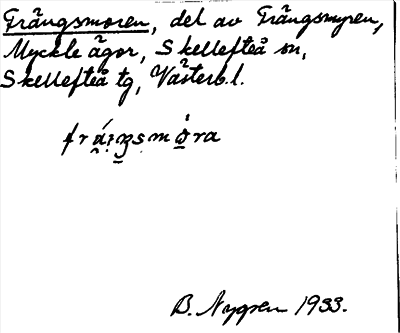 Trängsmoren, del av Trängsmyren,
Myckle ägor, Skellefteå sn,
Skellefteå tg, Västerb.l.
B. Nygren 1933.